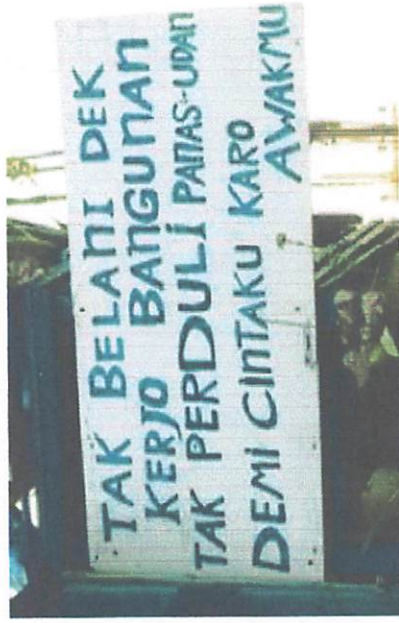 TAK BELANI DEK
KERJO BANGUNAN
TAK PERDULI PANAS-UDAN
DEMI CINTAKU KARO
AWAKMU